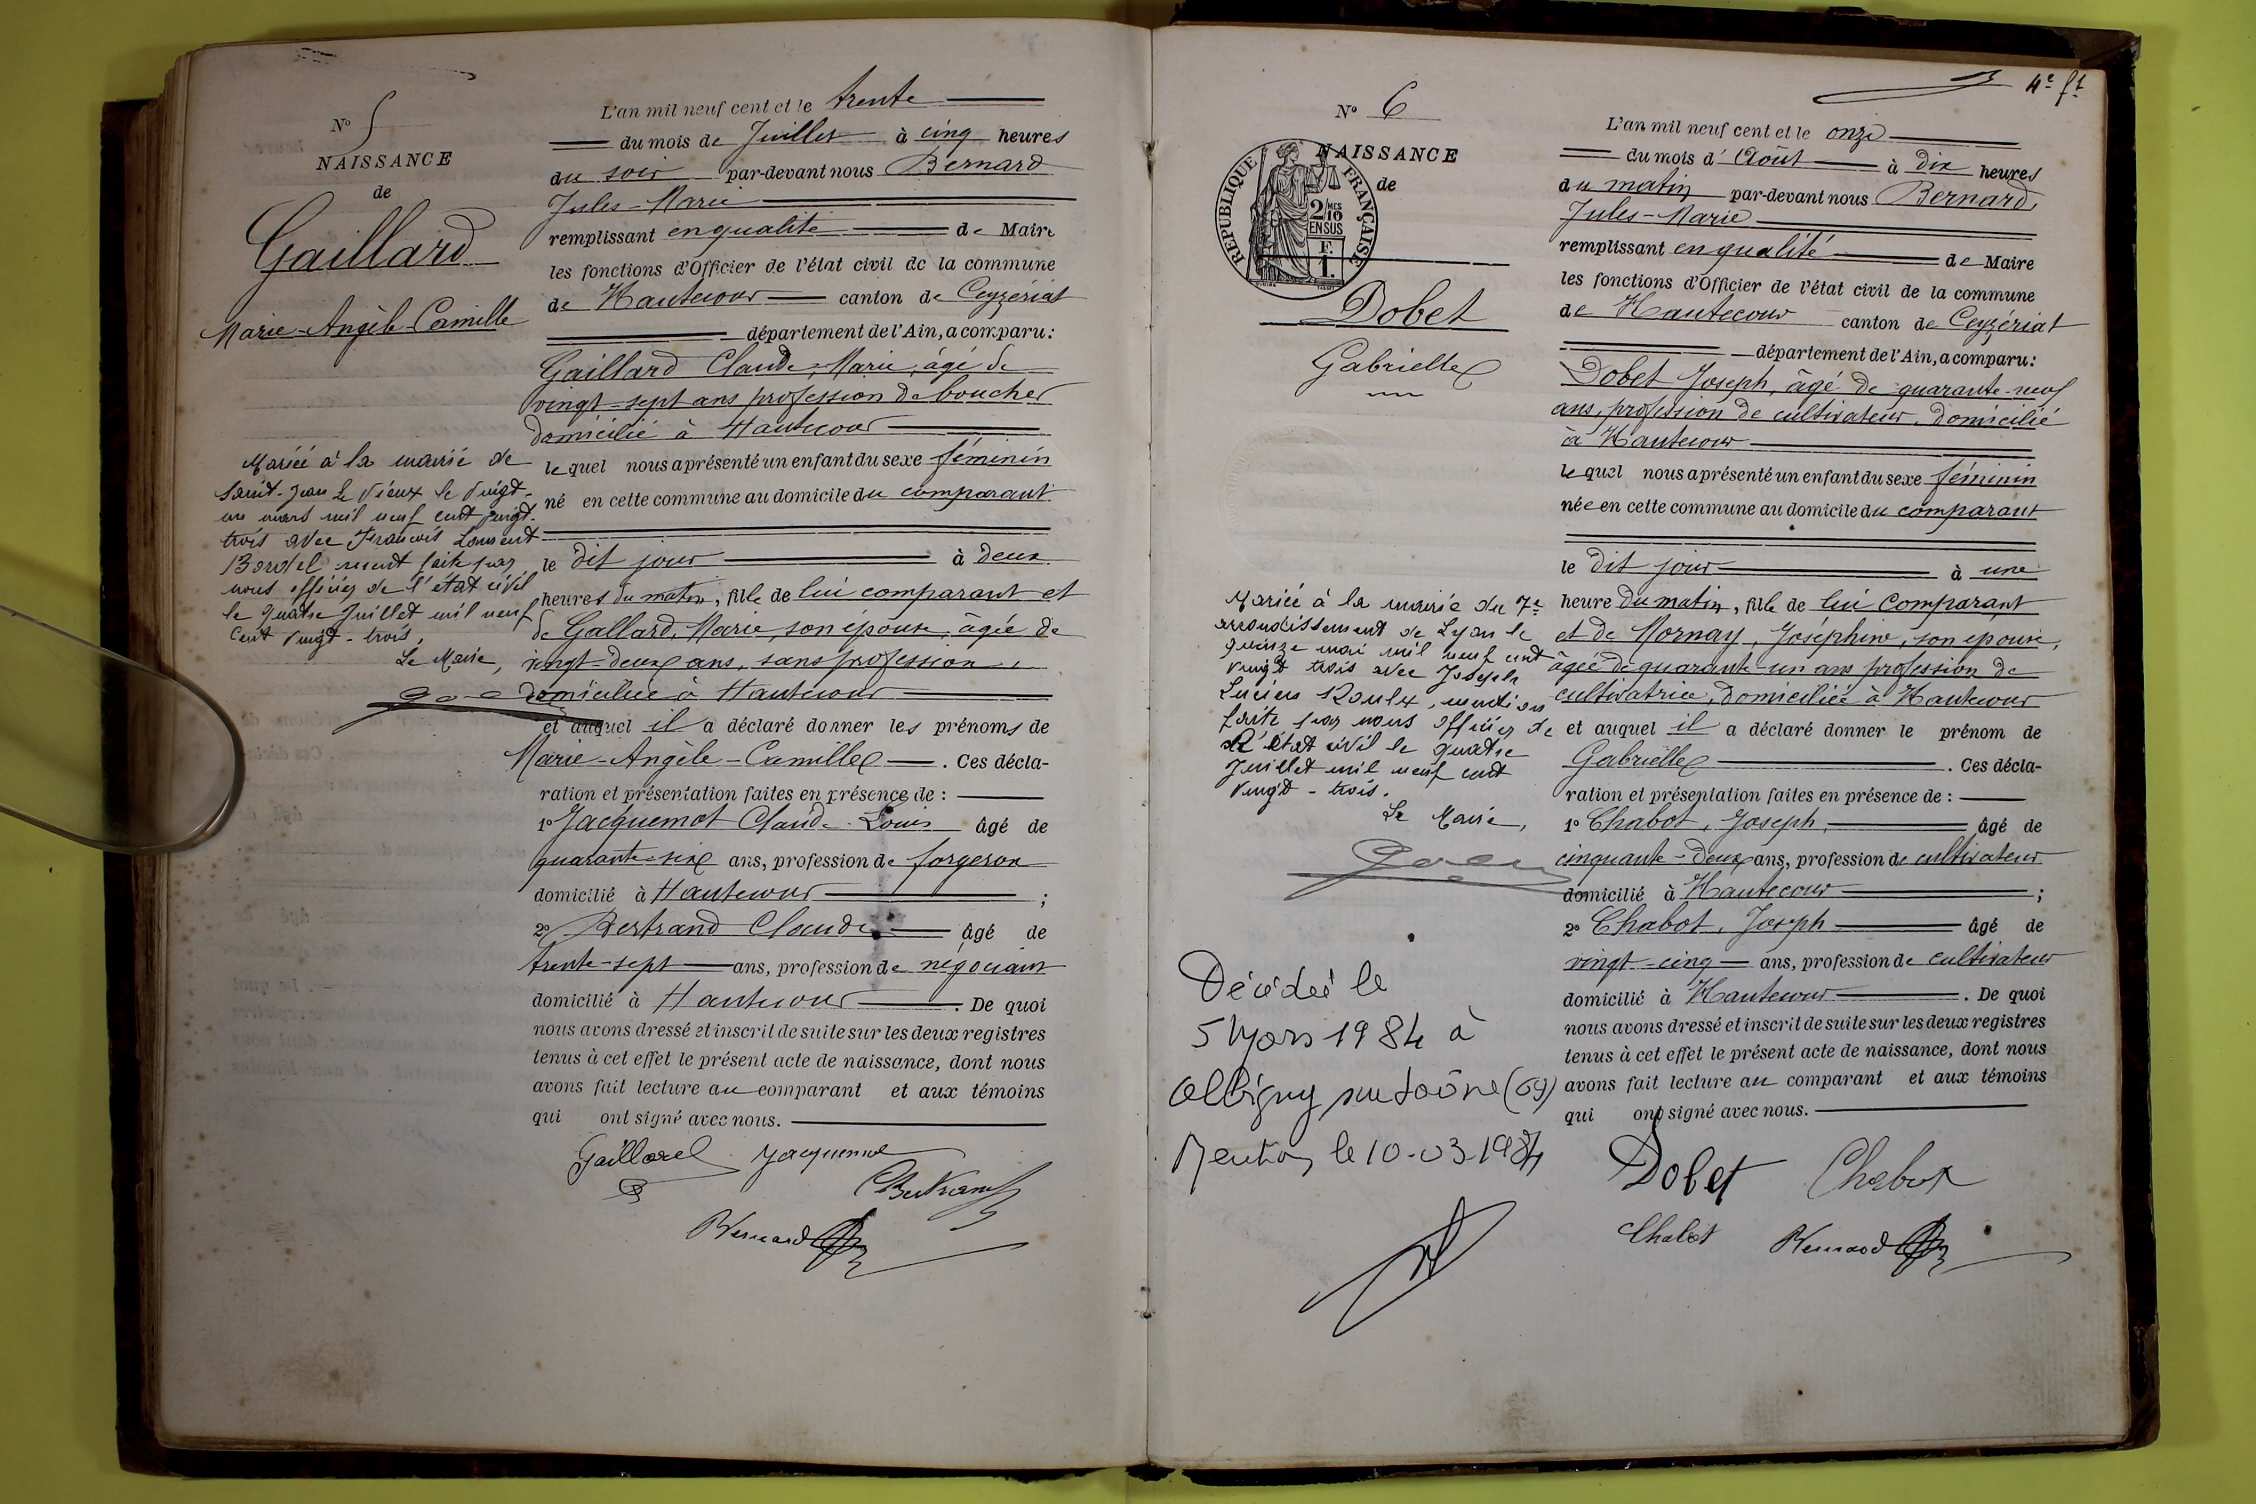 N° 5
NAISSANCE
de
Gaillard
Marie-Angèle-Camille
Mariée à la mairie de
Saint-Jean le Vieux le vingt-
un mars mil neuf cent vingt-
trois avec François Laurent
ment faite par
nous officier de l'état civil
le quatre Juillet mil neuf
cent vingt-trois,
Le Maire,
L'an mil neuf cent et le trente
du mois de Juillet à cinq heures
du soir par-devant nous Bernard
Jules-Marie
remplissant en qualité de Maire
les fonctions d'Officier de l'état civil de la commune
de Hautecour canton de Ceyzériat
département de l'Ain, a comparu:
Gaillard Claude-Marie, âgé de
vingt-sept ans profession de boucher
domicilié à Hautecour
lequel nous a présenté un enfant du sexe féminin
né en cette commune au domicile du comparant
le dit jour à deux
heures du matin, fille de lui comparant et
de Gallard, Marie, son épouse, âgée de
vingt-deux ans, sans profession,
domiciliée à Hautecour
et auquel il a déclaré donner les prénoms de
Marie-Angèle-Camille. Ces décla-
ration et présentation faites en présence de :
1° Jacquemot Claude-Louis âgé de
quarante-six ans, profession de forgeron
domicilié à Hautecour ;
2° Bertrand Claude âgé de
trente-sept ans, profession de négociant
domicilié à Hautecour. De quoi
nous avons dressé et inscrit de suite sur les deux registres
tenus à cet effet le présent acte de naissance, dont nous
avons fait lecture au comparant et aux témoins
qui ont signé avec nous.
Gaillard Jacquemot
CBertrand
Bernard
4e ft
N° 6
NAISSANCE
de
RÉPUBLIQUE FRANÇAISE
2/10 MES
EN SUS
F.
1.
Dobet
Gabrielle
Mariée à la mairie du 7e
arrondissement de Lyon le
quinze mai mil neuf cent
vingt trois avec Joseph
Lucien Roulx, mention
faite par nous officier de
l'état civil le quatre
Juillet mil neuf cent
vingt-trois.
Le Maire,
Décédée le
5 Mars 1984 à
Albigny sur Saône (69)
Mention le 10-03-1984
L'an mil neuf cent et le onze
du mois d' Août à dix heures
du matin par-devant nous Bernard
Jules-Marie
remplissant en qualité de Maire
les fonctions d'Officier de l'état civil de la commune
de Hautecour canton de Ceyzériat
département de l'Ain, a comparu:
Dobet Joseph, âgé de quarante-neuf
ans, profession de cultivateur, domicilié
à Hautecour
lequel nous a présenté un enfant du sexe féminin
née en cette commune au domicile du comparant
le dit jour à une
heure du matin, fille de lui comparant
et de Mornay, Joséphine, son épouse,
âgée de quarante-un ans profession de
cultivatrice, domiciliée à Hautecour
et auquel il a déclaré donner le prénom de
Gabrielle. Ces décla-
ration et présentation faites en présence de :
1° Chabot, Joseph, âgé de
cinquante-deux ans, profession de cultivateur
domicilié à Hautecour ;
2° Chabot, Joseph âgé de
vingt-cinq ans, profession de cultivateur
domicilié à Hautecour. De quoi
nous avons dressé et inscrit de suite sur les deux registres
tenus à cet effet le présent acte de naissance, dont nous
avons fait lecture au comparant et aux témoins
qui ont signé avec nous.
Dobet Chabot
Chabot Bernard